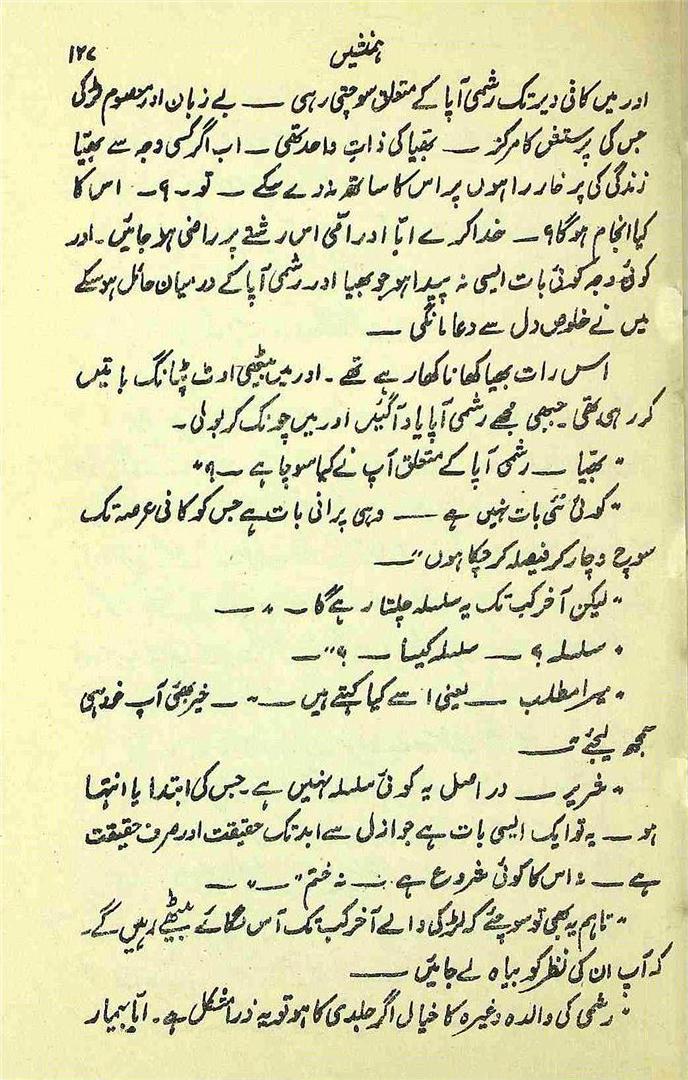 ہمنشیں ۱۲۷
اور میں کافی دیر تک رشمی آپا کے متعلق سوچتی رہی — بے زبان اور معصوم لڑکی
جس کی پرستش کا مرکز — بھیّا کی ذات واحد تھی — اب اگر کسی وجہ سے بھیّا
زندگی کی پر خار راہوں پر اس کا ساتھ نہ دے سکے — تو — ؟ — اس کا
کیا انجام ہوگا؟ — خدا کرے ابّا اور امّی اس رشتے پر راضی ہو جائیں ۔ اور
کوئی وجہ کوئی بات ایسی نہ پیدا ہو جو بھیا اور رشمی آپا کے درمیان حائل ہو سکے
میں نے خلوصِ دل سے دعا مانگی —
اس رات بھیا کھانا کھا رہے تھے ۔ اور میں بیٹھی اوٹ پٹانگ باتیں
کر رہی تھی ۔ جبھی مجھے رشمی آپا یاد آگئیں اور میں چونک کر بولی ۔
"بھیّا — رشمی آپا کے متعلق آپ نے کیا سوچا ہے — ؟"
"کوئی نئی بات نہیں ہے — وہی پرانی بات ہے جس کو کافی عرصہ تک
سوچ وچار کر فیصلہ کر چکا ہوں" —
"لیکن آخر کب تک یہ سلسلہ چلتا رہے گا — " —
"سلسلے؟ — سلسلہ کیسا — ؟" —
"میرا مطلب — یعنی اسے کیا کہتے ہیں — " — خیر بھئی آپ خود ہی
سمجھ لیجئے" —
"غریر — در اصل یہ کوئی سلسلہ نہیں ہے ۔ جس کی ابتدا یا انتہا
ہو — یہ تو ایک ایسی بات ہے جو ازل سے ابد تک حقیقت اور صرف حقیقت
ہے — نہ اس کا کوئی شروع ہے — نہ ختم" — " —
"تاہم یہ بھی تو سوچئے کہ لڑکی والے آخر کب تک آس لگائے بیٹھے رہیں گے ۔
کہ آپ ان کی نظر کو بیاہ لے جائیں —
"رشمی کی والدہ وغیرہ کا خیال اگر جلدی کا ہو تو یہ ذرا مشکل ہے ۔ ابّا بیمار